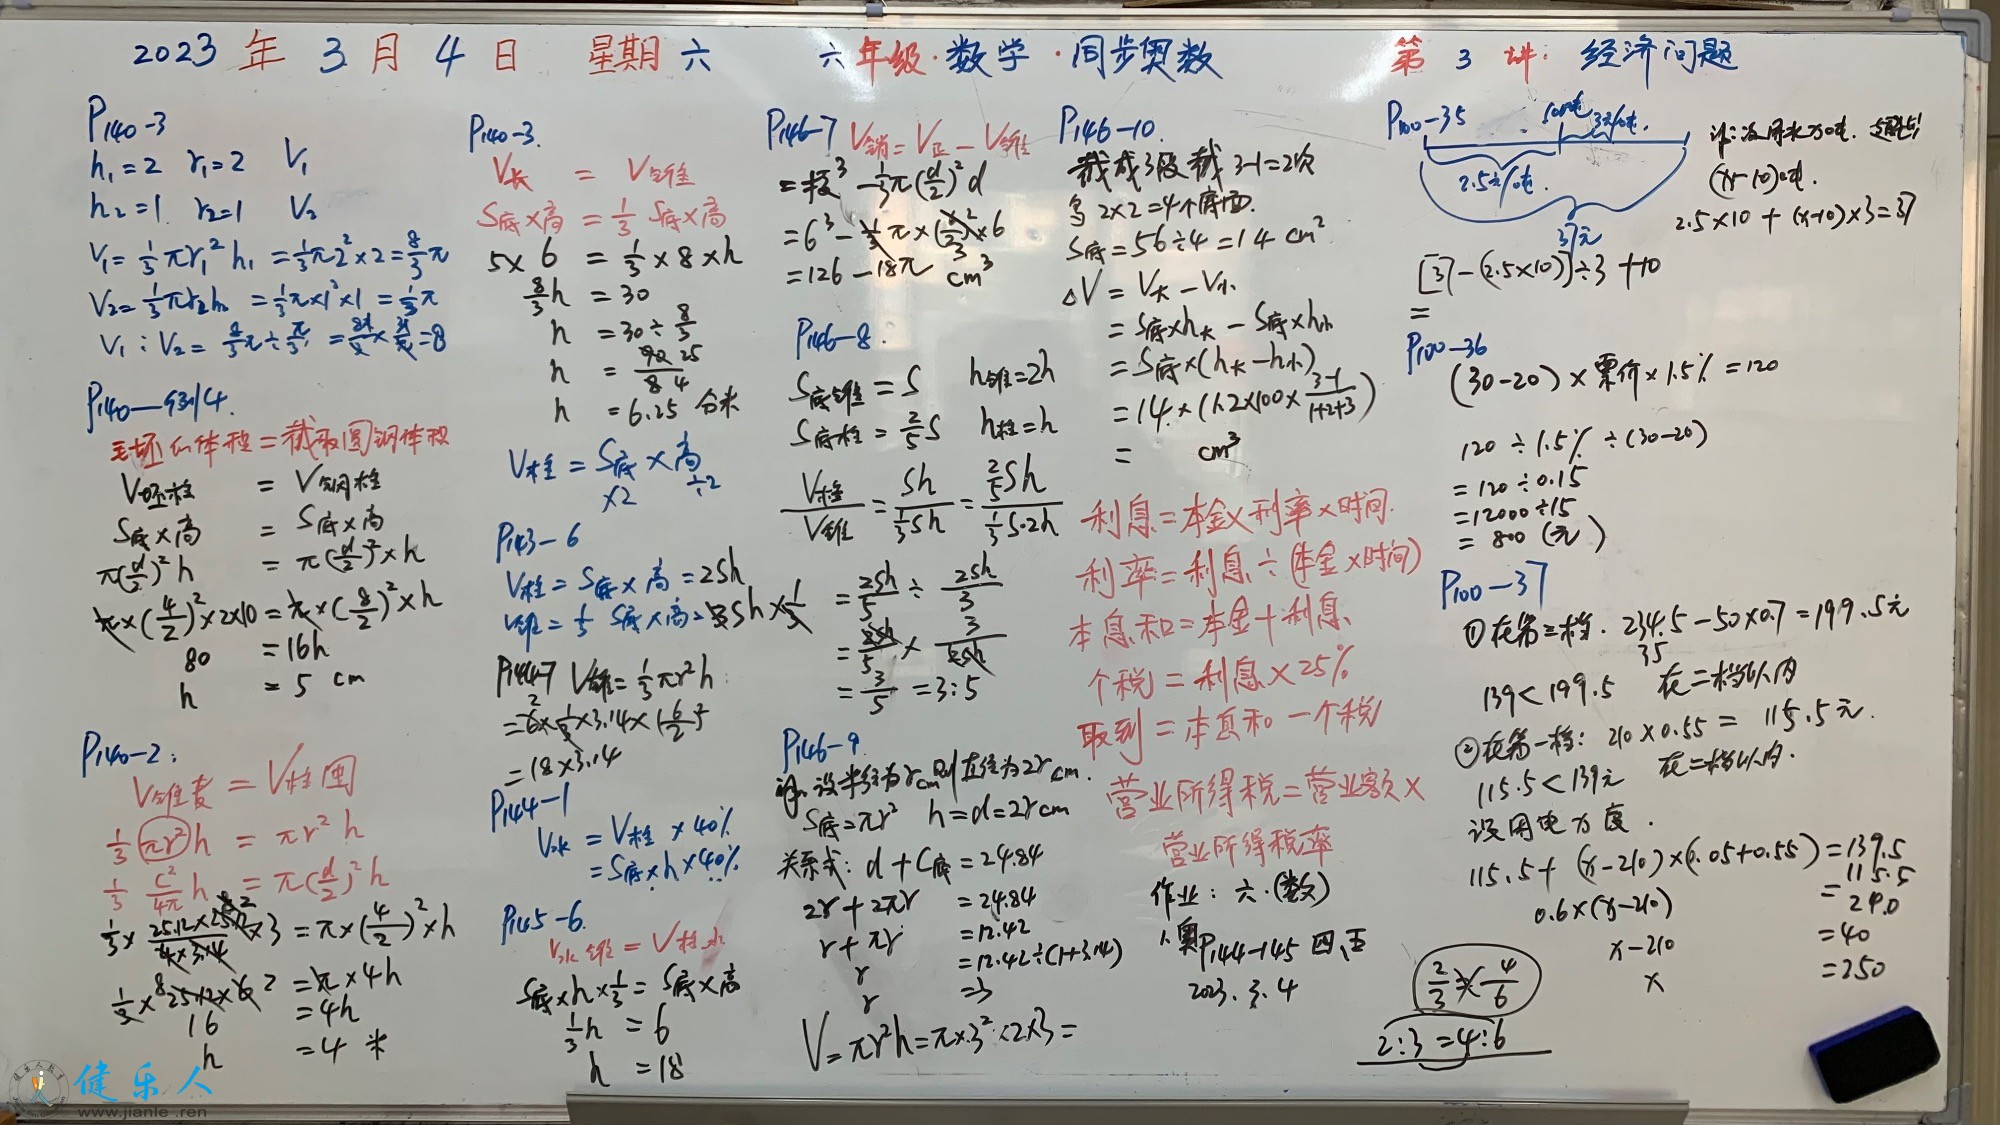 2023年3月4日 星期六 六年级·数学·同步奥数 第3讲:经济问题
P140-3
h₁=2 r₁=2 V₁
h₂=1 r₂=1 V₂
V₁=1/3πr₁²h₁=1/3π2²×2=8/3π
V₂=1/3πr₂h₂=1/3π×1²×1=1/3π
V₁:V₂=8/3π÷π/3=8π/3×3/π=8
P140-例4.
毛坯的体积=截取圆钢体积
V坯柱=V钢柱
S底×高=S底×高
π(d/2)²h=π(d/2)²×h
π×(4/2)²×2×10=π×(8/2)²×h
80=16h
h=5 cm
P140-2:
V锥麦=V柱囤
1/3πr²h=πr²h
1/3 C²/4π h=π(d/2)²h
=π×(4/2)²×h
=π×4h
16=4h
h=4米
P140-3.
V长=V锥
S底×高=1/3S底×高
5×6=1/3×8×h
8/3h=30
h=30÷8/3
h=90/8
h=6.25分米
V柱=S底×高
×2 ÷2
P143-6
V柱=S底×高=2Sh
P144-7 V锥=1/3πr²h
=6×1/3×3.14×(6/2)²
=18×3.14
P144-1
V水=V柱×40%
=S底×h×40%
P145-6
V水锥=V柱水
S底×h×1/3=S底×高
1/3h=6
h=18
P146-7 V销=V正-V锥
=棱³-1/3π(d/2)²d
=6³-1/3π×(6/2)²×6
=126-18π cm³
P146-8.
S底锥=S h锥=2h
S底柱=2/5S h柱=h
V柱/V锥=Sh/(1/3Sh)=(2/5Sh)/(1/3S·2h)
=2Sh/5÷2Sh/3
=2Sh/5×3/2Sh
=3/5=3:5
P146-9
设半径为rcm则直径为2rcm.
S底=πr² h=d=2rcm
关系式:d+C底=24.84
2r+2πr=24.84
r+πr=12.42
r=12.42÷(1+3.14)
r=3
V=πr²h=π×3²×2×3=
P146-10
截成3段截3-1=2次
多2×2=4个底面.
S底=56÷4=14cm²
△V=V大-V小
=S底×h大-S底×h小
=S底×(h大-h小)
=14×(1.2×100×(3-1)/(1+2+3))
= cm³
利息=本金×利率×时间.
利率=利息÷(本金×时间)
本息和=本金+利息
个税=利息×25%
取到=本息和-个税
营业所得税=营业额×
营业所得税率
作业:六.(数)
1.奥P144-145 四、五
2023.3.4
P100-35
2.5元/吨
37元
(x-10)吨.
2.5×10+(x-10)×3=37
[37-(2.5×10)]÷3+10
=
P100-36
(30-20)×票价×1.5%=120
120÷1.5%÷(30-20)
=120÷0.15
=12000÷15
=800(元)
P100-37
①在第三档.234.5-50×0.7=199.5元
35
139<199.5 在二档以内
②在第一档:210×0.55=115.5元.
115.5<139元 在二档以内.
设用电x度.
115.5+(x-210)×(0.05+0.55)=139.5
115.5
0.6×(x-210)=24.0
x-210=40
x=250
2/3 4/6
2:3=4:6
健乐人
www.jianle.ren